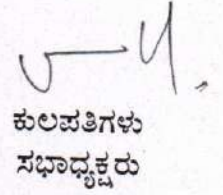 ಕುಲಪತಿಗಳು
ಸಭಾಧ್ಯಕ್ಷರು